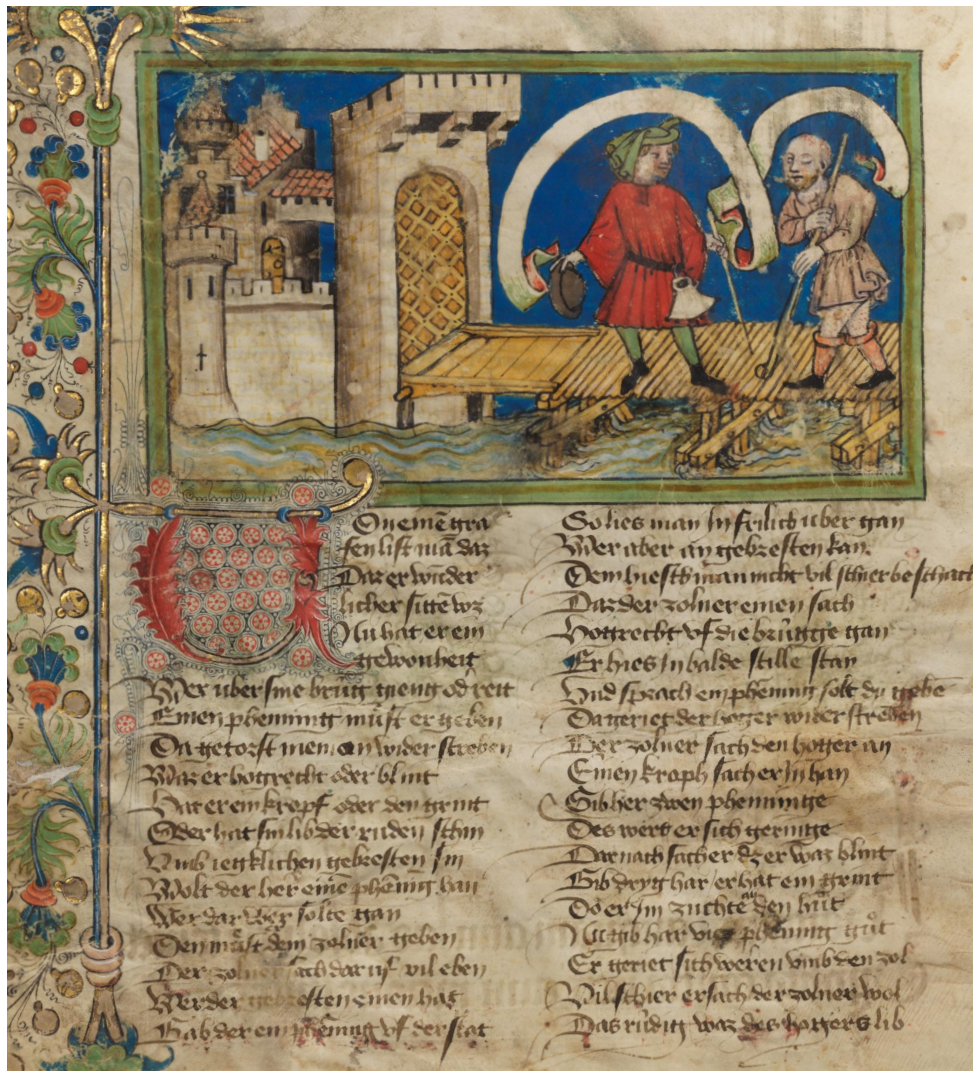 Von eīnē gra
fen list mā daz
Daz er wnder
licher sittē wz
Nu hat er ein
gewonheit
Wer über sine brug gieng od reit
Einen phenning můst er geben
Da getorst nieman wider streben
Waz er hogrecht oder blint
Hat er ein kropf oder den grint
Oder hat sin lib der ruden schin
Vmb iegklichen gebresten sin
Wolt der her einē phēnig han
Wer dar über solte gan
Den můst dem zolner geben
Der zolner sach dar uf vil eben
Wer der gebresten einen hat
Gab der ein phēnig vf der stat
So lies man in frilich über gan
Wer aber an gebresten kan
Dem hiesch man nicht vil schier beschach
Daz der zolner einen sach
Hogrecht vf die brügge gan
Er hies in balde stille stan
Vnd sprach ein phēning solt du gebē
Da geriet der hoger wider streben
Der zolner sach den hoger an
Einen kroph sach er in han
Gib her zwen pheninge
Des wert er sich geringe
Darnach sach er dz er waz blint
Gib dryg har / er hat ein grint
Do er im zuchte den hůt
Nu gib har vier phēning gůt
Er geriet sich weren vmb den zol
Vil schier ersach der zolner wol
Das rüdig waz des hogers lib